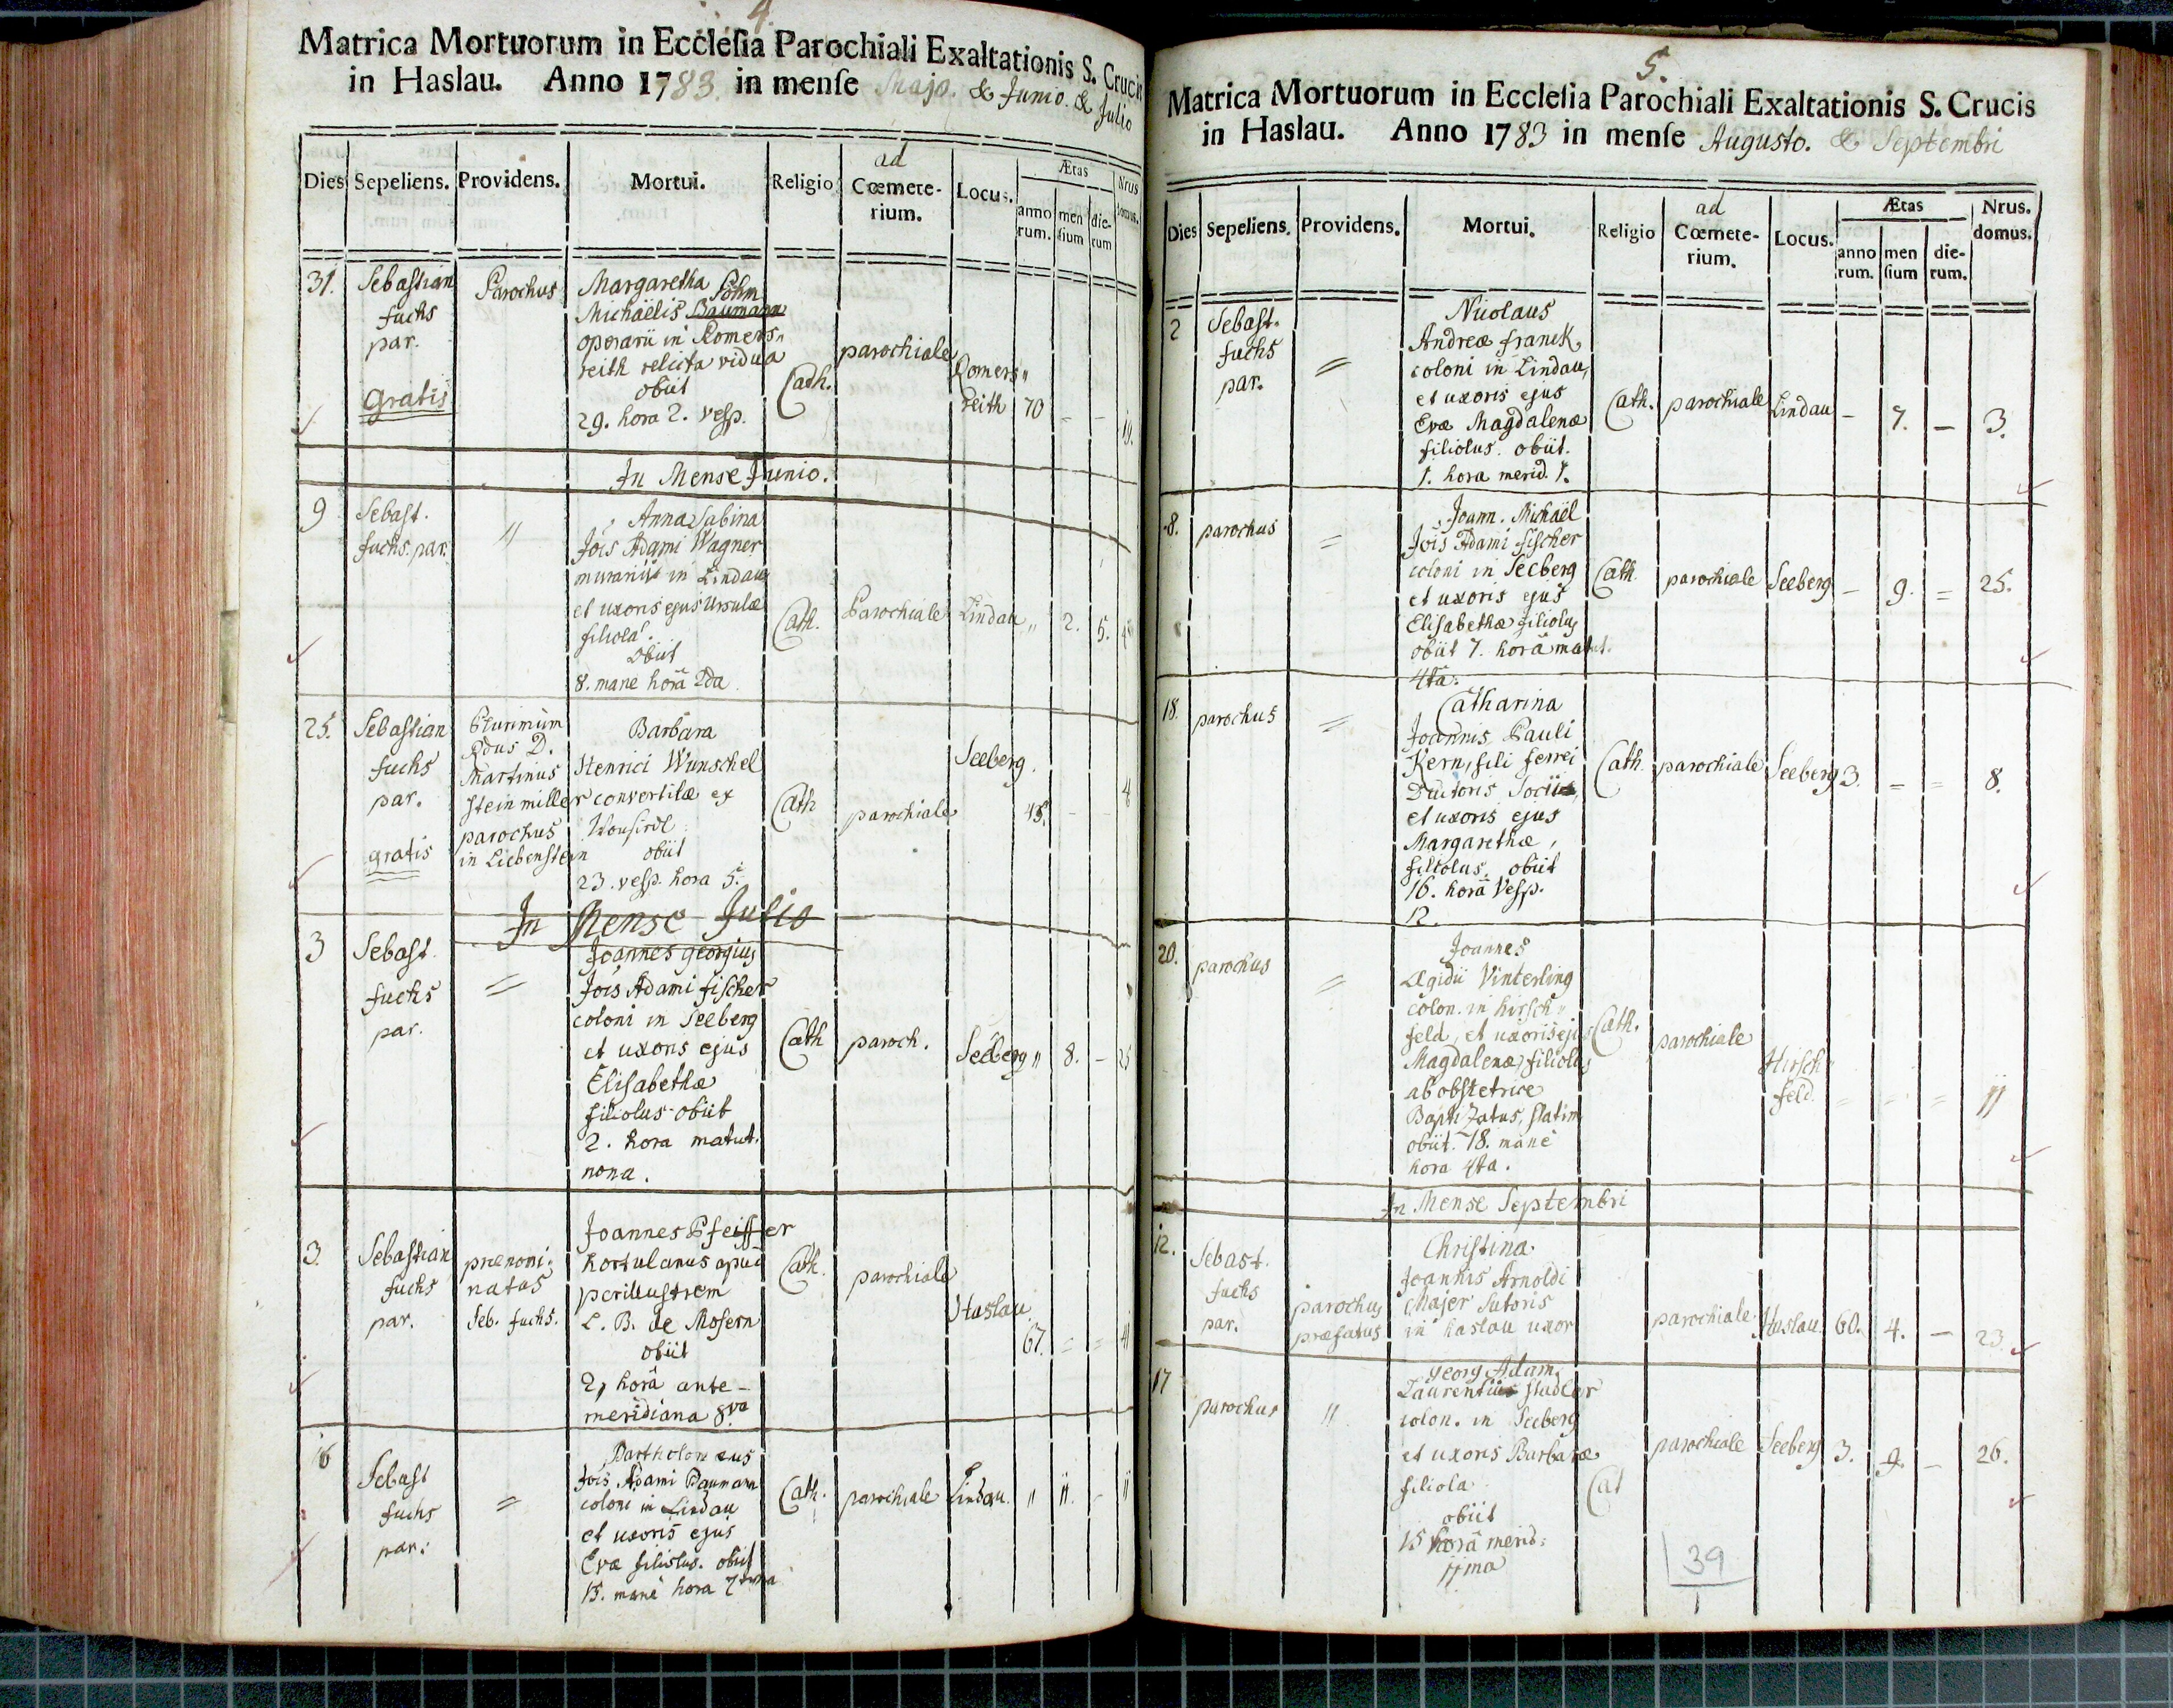 4.
Matrica Mortuorum in Ecclesia Parochiali Exaltationis S. Crucis
in Haslau. Anno 1783. in mense Majo. & Junio. & Julio
Dies Sepeliens. Providens. Mortui. Religio ad Cœmete-rium. Locus. Ætas anno rum. men sium die-rum Nrus domus.
31. Sebastian Parochus Margaretha Böhm
fuchs Michaëlis Baumann
par. operarii in Romers„
reith relicta vidua parochiale
obiit Cath. Romers„
gratis 29. hora 2. vesp. reith 70 - - 19.
In Mense Junio.
9 Sebast. „ Anna Sabina
fuchs. par. Jois Adami Wagner
murarii in Lindau
et uxoris ejus Ursulæ Cath. Parochiale Lindau „ 2. 5.
filiola.
obiit
8. mane horâ 2da
25. Sebastian Plurimùm Barbara
Rdus D.
fuchs Martinus Henrici Wunschel Seeberg.
par. Steinmiller convertitæ ex Cath parochiale 45. - - 4
parochus
gratis in Liebenstein obiit
23. vesp. hora 5.
In Mense Julio
3 Sebast. = Joannes georgius
fuchs Jois Adami fischer
par. coloni in Seeberg
et uxoris ejus Cath paroch. Seeberg „ 8. - 25
Elisabethæ
filiolus obiit
2. hora matut.
nona.
3. Sebastian prænomi- Joannes Pfeiffer
fuchs natus hortulanus apud Cath. parochiale
par. Seb. fuchs. perillustrem Haslau
L. B. de Mosern 67. = =
obiit
2, horâ ante-
meridiana 8va
16 Sebast = Bartholomæus
fuchs Jois Adami Baumann
par. coloni in Lindau Cath. parochiale Lindau. „ 11. - 11
et uxoris ejus
Evæ filiolus. obiit
15. manè hora 7tima
5.
Matrica Mortuorum in Ecclesia Parochiali Exaltationis S. Crucis
in Haslau. Anno 1783 in mense Augusto. & Septembri
Dies Sepeliens. Providens. Mortui. Religio ad Cœmete-rium. Locus. Ætas anno rum. men sium die-rum. Nrus. domus.
2 Sebast. = Nicolaus
fuchs Andreæ franck,
par. coloni in Lindau,
et uxoris ejus Cath. parochiale Lindau - 7. - 3.
Evæ Magdalenæ
filiolus. obiit.
1. hora merid. 1.
8. parochus = Joann. Michaël
Jois Adami fischer
coloni in Seeberg Cath. parochiale Seeberg - 9. = 25.
et uxoris ejus
Elisabethæ filiolus
obiit 7. horâ matut.
4ta.
18. parochus = Catharina
Joannis Pauli
Kern, fili ferrei Cath. parochiale Seeberg 3. = = 8.
Ductoris Socii
et uxoris ejus
Margarethæ,
filiolus. obiit
16. horâ Vesp.
12.
20. parochus = Joannes
Ægidii Vinterling
colon. in hirsch„
feld, et uxoris ejus Cath. parochiale
Magdalenæ, filiolus Hirsch„
ab obstetrice feld. = = = 11
Baptizatus, statim
obiit. 18. manè
hora 4ta.
In Mense Septembri
12. Sebast. Christina
fuchs parochus Joannis Arnoldi
par. præfatus Majer sutoris
in haslau uxor parochiale Haslau. 60. 4. - 23.
17 parochus „ georg Adam
Laurentii stadler
colon. in Seeberg
et uxoris Barbaræ Cat parochiale Seeberg 3. 9. - 26.
filiola
obiit
15 horâ merid:
11ma
39